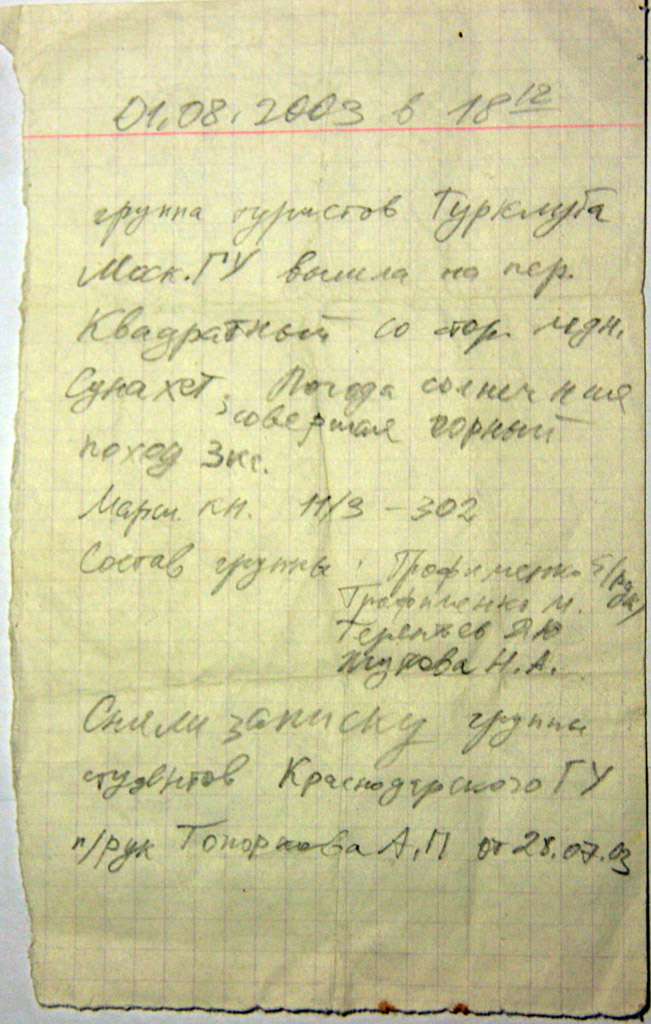 01.08.2003 в 18 12
группа туристов Турклуба
Моск. ГУ вышла на пер.
Квадратный со стор. ледн.
Сунахет, Погода солнечная
совершая горный
поход 3 кс.
Марш. кн. 11/3 - 302
Состав группы: Трофименко (рук)
Трофименко М.
Терентьев
Жукова Н.А.
Сняли записку группы
студентов Краснодарского ГУ
п/рук Топоркова А.П от 28.07.03